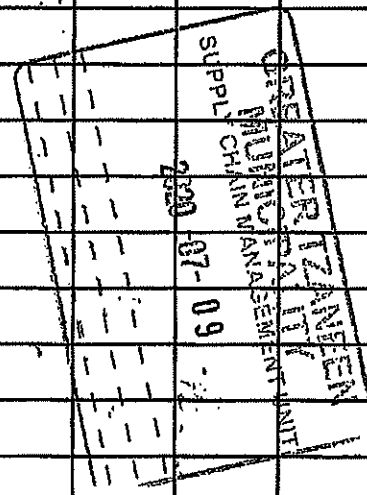 GREATER TZANEEN
MUNICIPALITY
SUPPLY CHAIN MANAGEMENT UNIT
2020 -07- 09